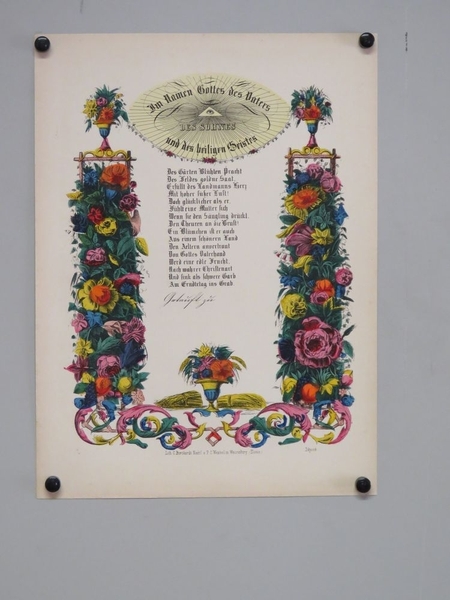 Im Namen Gottes des Vaters
DES SOHNES
und des heiligen Geistes
Des Gärten Blüthen Pracht
Des Feldes goldne Saat,
Erfüllt des Landmanns Herz
Mit hoher süsser Lust!
Doch glücklicher als er
Fühlt eine Mutter sich
Wenn sie den Säugling drückt,
Den Theuren an die Brust!
Ein Blümchen ist er auch
Aus einem schönern Land
Den Aeltern anvertraut
Von Gottes Vaterhand
Werd eine edle Frucht,
Nach wahrer Christenart
Und sink als schwere Garb
Am Erndtetag ins Grab
Getauft zu